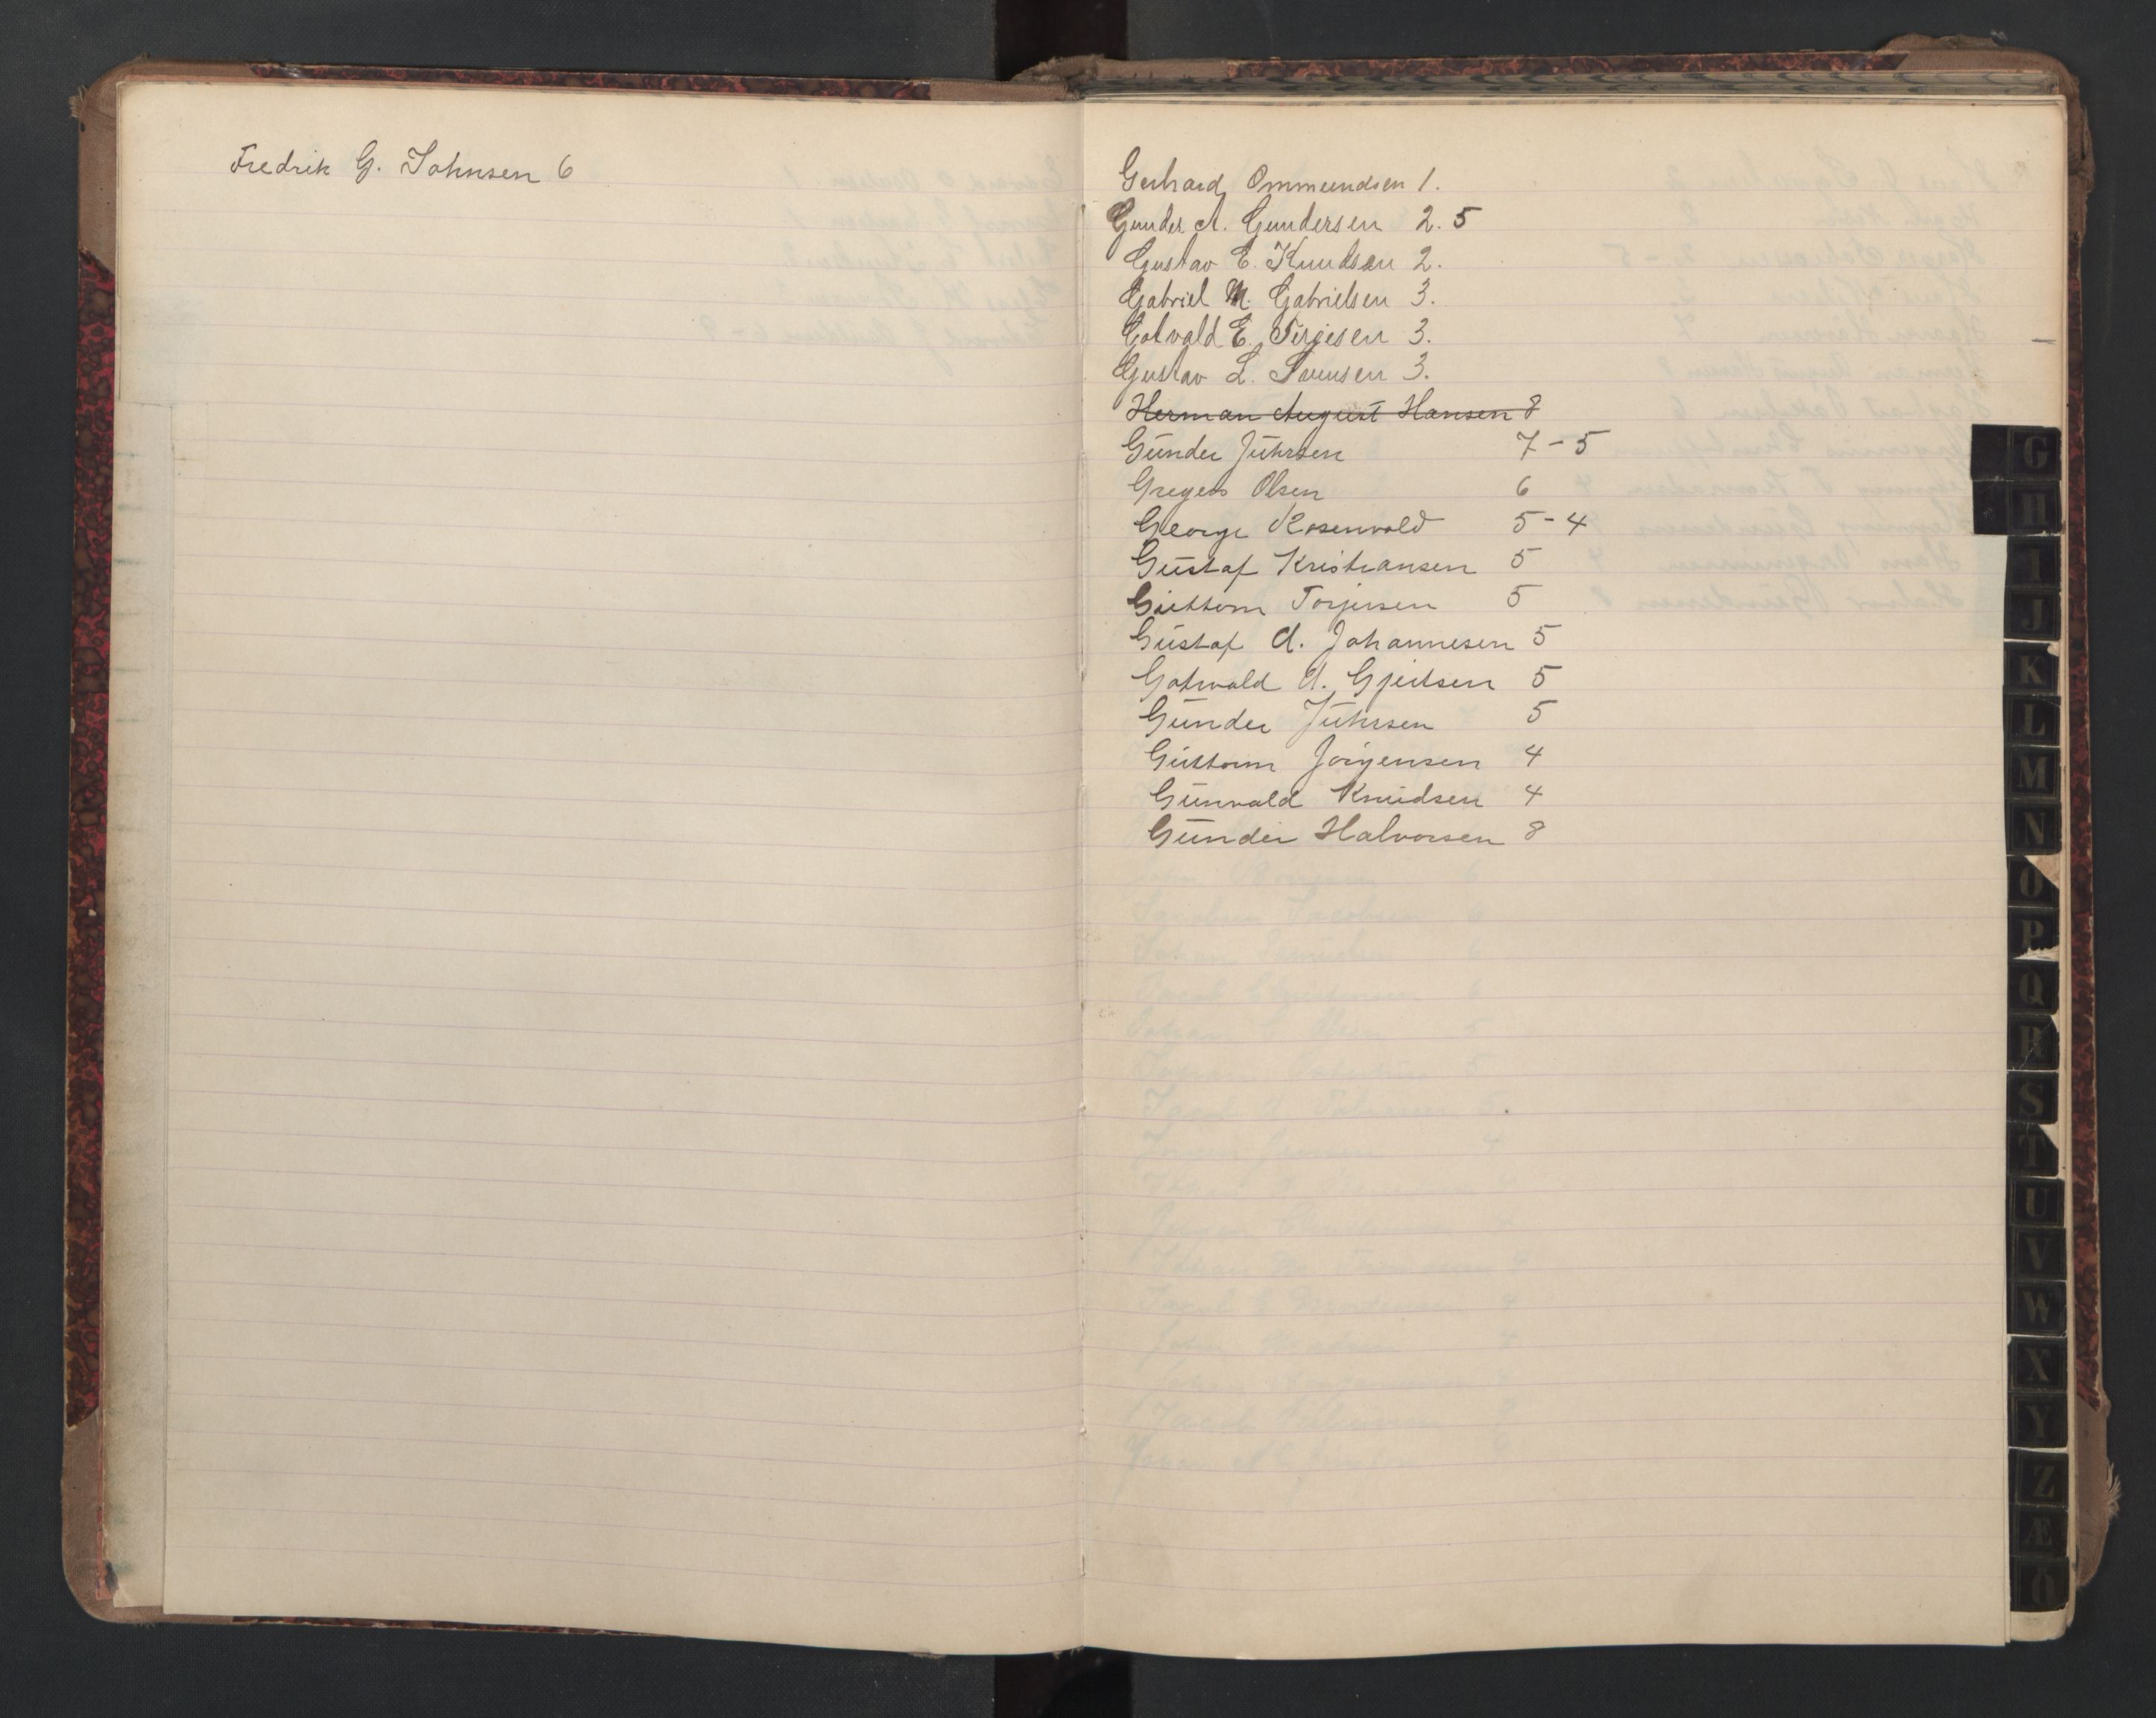 Fredrik G. Johnsen 6
Gerhard Ommundsen 1.
Gunder A. Gundersen 2. 5
Gustav E. Knudsen 2.
Gabriel M. Gabrielsen 3.
Gotvald E. Terjesen 3.
Gustav L. Sørensen 3.
Herman August Hansen 8
Gunder Juhrsen 7-5
Gregers Olsen 6
George Rosenvold 5-4
Gustaf Kristiansen 5
Guttorm Torjersen 5
Gustaf A. Johannesen 5
Gotwald A. Gjertsen 5
Gunder Juhrsen 5
Guttorm Jørgensen 4
Gunvald Knudsen 4
Gunder Halvorsen 8
G
H
I
J
K
L
M
N
O
P
Q
R
S
T
U
V
W
X
Y
Z
Æ
Ö